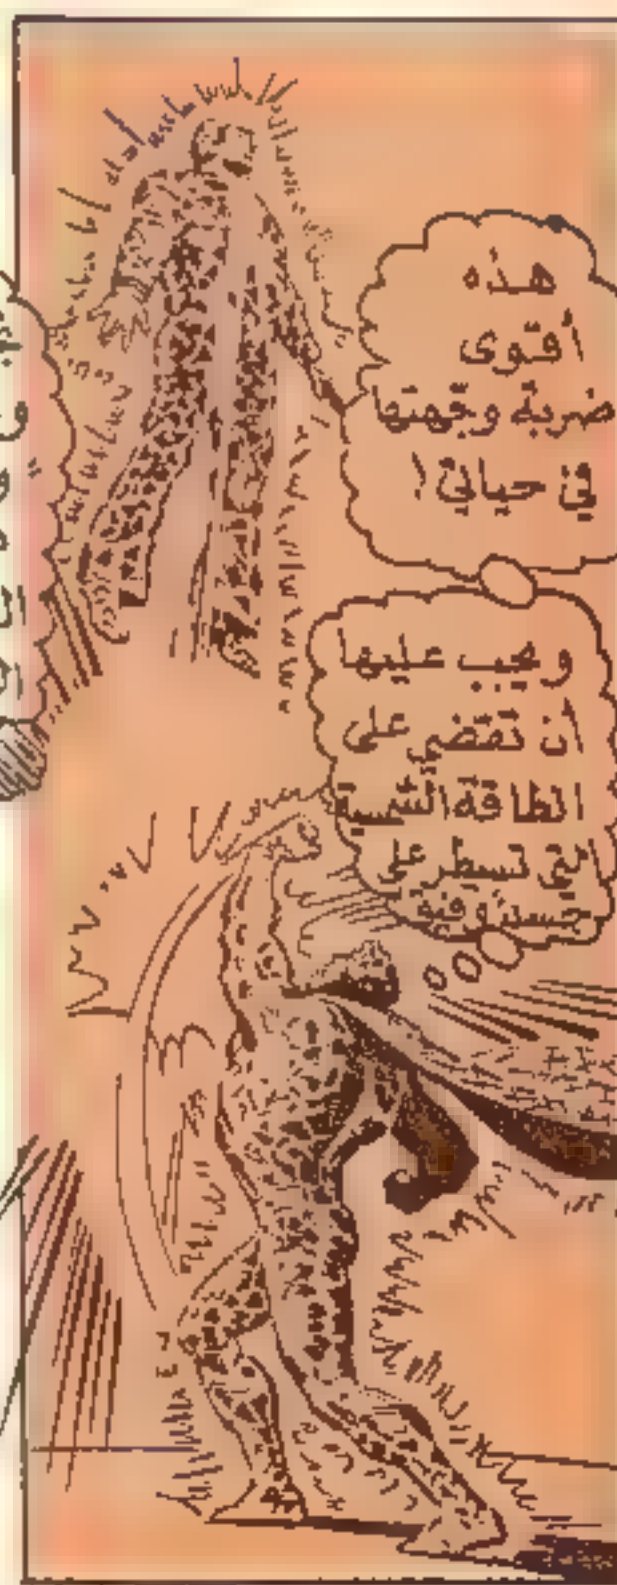 هذه
أقوى
ضربة وجهتها
في حياتي !
ويجب عليها
أن تقضي على
الطاقة الشمسية
التي تسيطر على